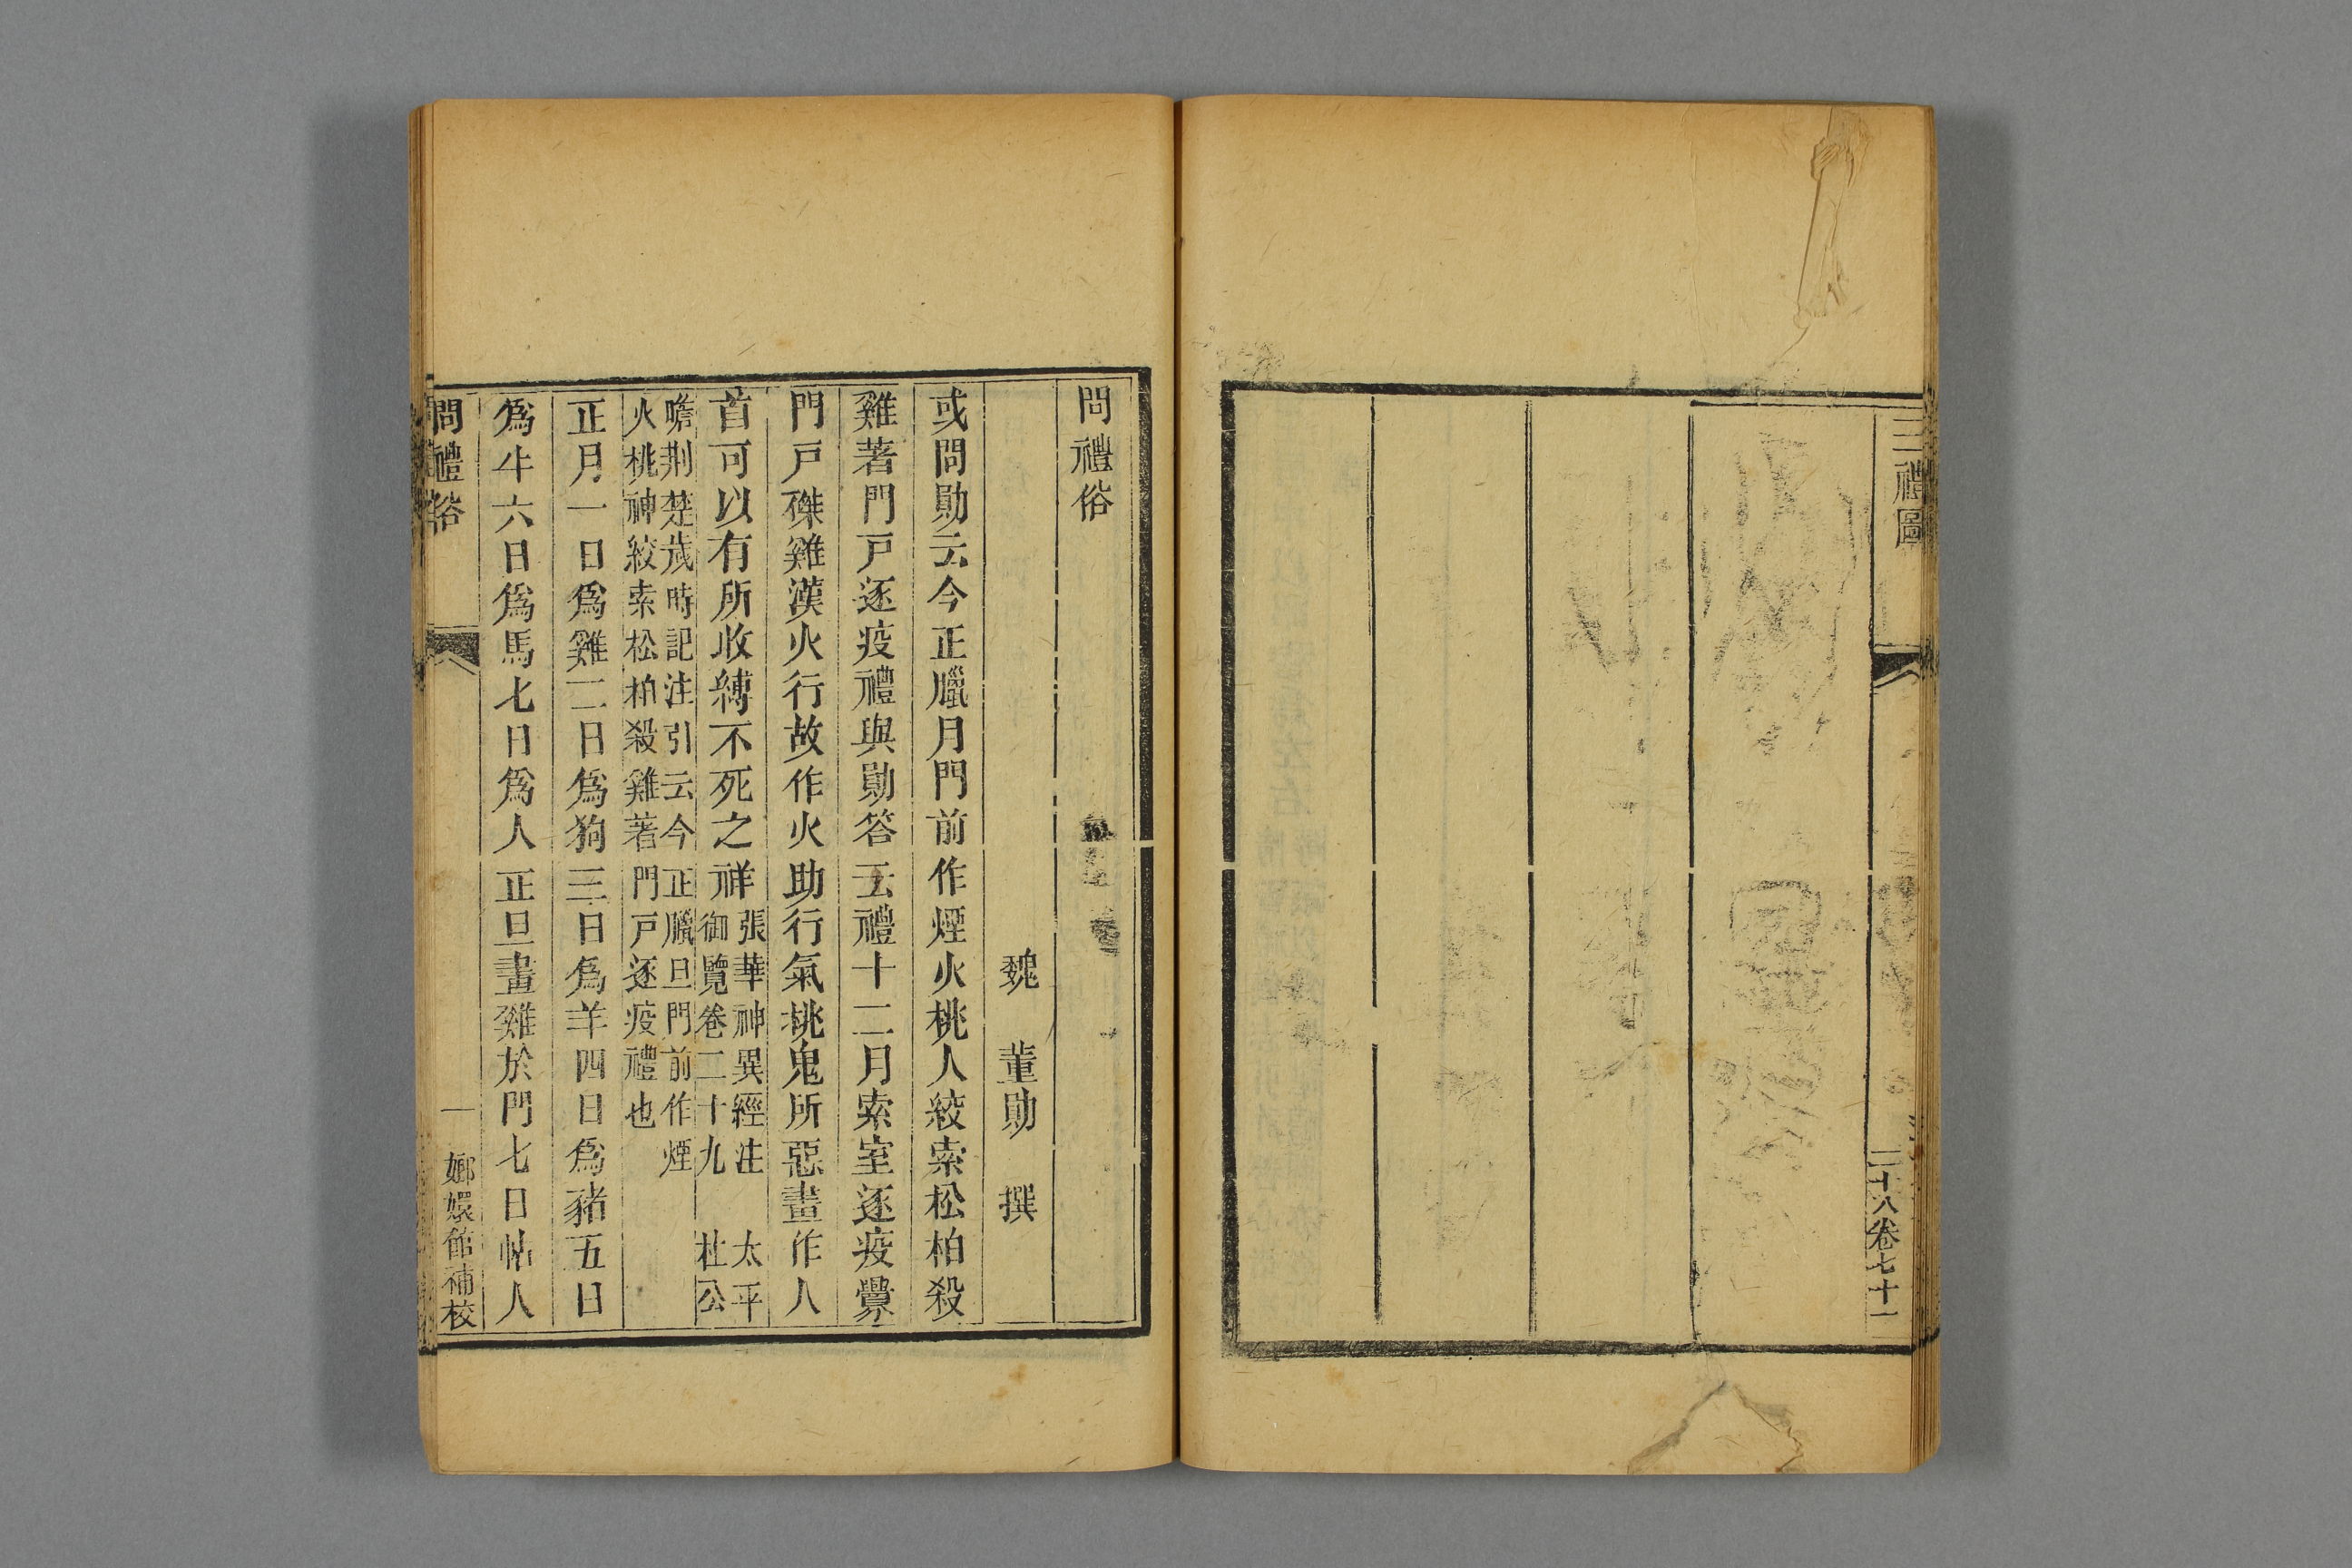 三禮圖
二十八卷七十二
問禮俗
魏 董勛 撰
或問勛云今正臘月門前作煙火桃人絞索松柏殺
雞著門戸逐疫禮與勛答云禮十二月索室逐疫釁
門戸磔雞漢火行故作火助行氣桃鬼所惡畫作人
首可以有所收縛不死之祥張華神異經注 太平
御覽卷二十九 杜公
瞻荆楚歲時記注引云今正臘旦門前作煙
火桃神絞索松柏殺雞著門戸逐疫禮也
正月一日爲雞二日爲狗三日爲羊四日爲豬五日
爲牛六日爲馬七日爲人正旦畫雞於門七日帖人
問禮俗
一
嫏嬛館補校